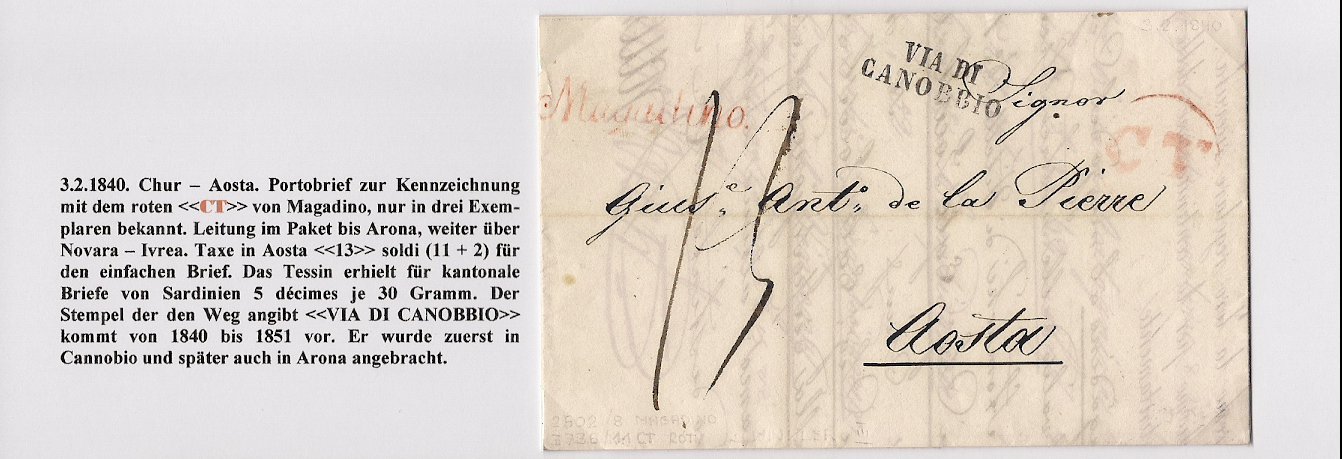 3.2.1840. Chur – Aosta. Portobrief zur Kennzeichnung
mit dem roten <<CT>> von Magadino, nur in drei Exem-
plaren bekannt. Leitung im Paket bis Arona, weiter über
Novara – Ivrea. Taxe in Aosta <<13>> soldi (11 + 2) für
den einfachen Brief. Das Tessin erhielt für kantonale
Briefe von Sardinien 5 décimes je 30 Gramm. Der
Stempel der den Weg angibt <<VIA DI CANOBBIO>>
kommt von 1840 bis 1851 vor. Er wurde zuerst in
Cannobio und später auch in Arona angebracht.
3.2.1840
VIA DI
CANOBBIO
Signor
Magadino.
CT
13
Gius.e Ant.o de la Pierre
Aosta
2802/8 MAGADINO
CT ROT